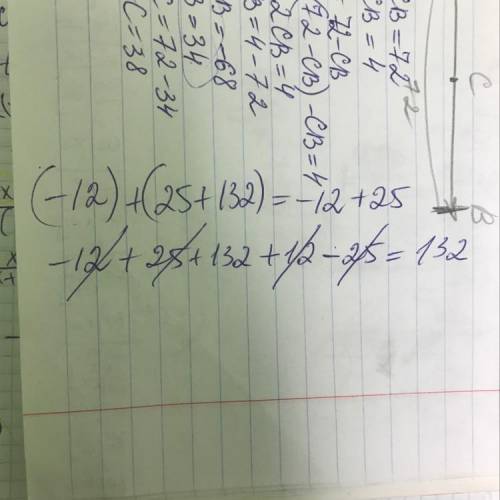 CB = 72
CB = 4
72 - CB
72 - CB) - CB = 4
2CB = 4
B = 4 - 72
B = -68
B = 34
C = 72 - 34
C = 38
72
C
B
(-12) + (25 + 132) = -12 + 25
-12 + 25 + 132 + 12 - 25 = 132